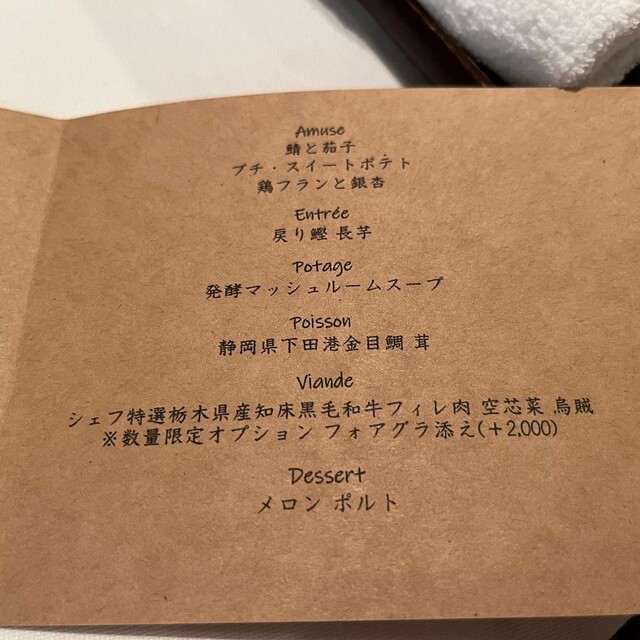 Amuse
鯖と茄子
プチ・スイートポテト
鶏フランと銀杏
Entrée
戻り鰹 長芋
Potage
発酵マッシュルームスープ
Poisson
静岡県下田港金目鯛 茸
Viande
シェフ特選栃木県産知床黒毛和牛フィレ肉 空芯菜 烏賊
※数量限定オプション フォアグラ添え(＋2,000)
Dessert
メロン ポルト